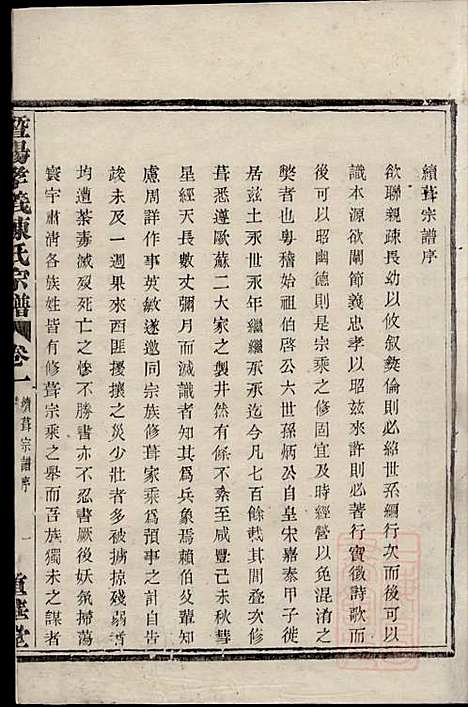 續葺宗譜序
欲聯親疎長幼以攸叙彜倫則必紹世系綱行次而後可以
識本源欲闡節義忠孝以昭茲來許則必著行實徵詩歌而
後可以昭幽德則是宗乘之修固宜及時經營以免混淆之
弊者也粤稽始祖伯啓公六世孫炳公自皇宋嘉泰甲子徙
居茲土永世永年繼繼承承迄今凡七百餘載其間叠次修
葺悉遵歐蘇二大家之製井然有條不紊至咸豐己未秋彗
星經天長數丈彌月而滅識者知其爲兵象焉賴伯及輩知
慮周詳作事英敏遂邀同宗族修葺家乘爲預事之計自告
竣未及一週果來西匪擾攘之災少壯者多被擄掠殘弱者
均遭荼毒滅裂死亡之慘不勝書亦不忍書厥後妖氛掃蕩
寰宇肅清各族姓皆有修葺宗乘之舉而吾族獨未之謀者
暨陽孝義陳氏宗譜
卷一
續葺宗譜序
一